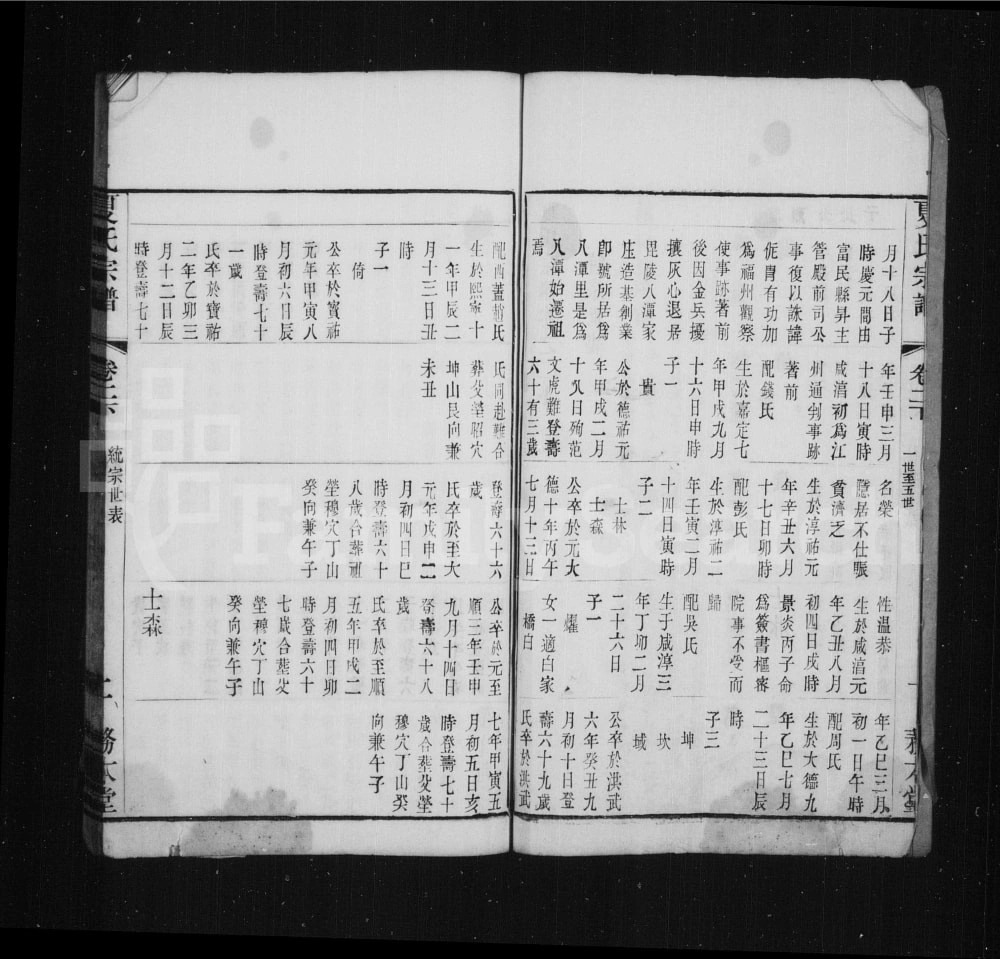 夏氏宗譜
卷二
一世至五世
務本堂
月十八日子
時慶元間由
富民縣昇主
管殿前司公
事復以誅諱
侂冑有功加
為福州觀察
使事跡著前
後因金兵擾
攘灰心退居
毘陵八潭家
庄造基創業
卽號所居爲
八潭里是爲
八潭始遷祖
焉
年壬申三月
十八日寅時
咸淳初爲江
州通判事跡
著前
配錢氏
生於嘉定七
年甲戌九月
十六日申時
子一
貴
公於德祐元
年甲戌二月
十八日殉范
文虎難登壽
六十有三歲
名榮
隱居不仕賑
貧濟乏
生於淳祐元
年辛丑六月
十七日卯時
配彭氏
生於淳祐二
年壬寅二月
十四日寅時
子二
士林
士森
公卒於元大
德十年丙午
七月十三日
性溫恭
生於咸淳元
年乙丑八月
初四日戌時
景炎丙子命
爲簽書樞密
院事不受而
歸
配吳氏
生于咸淳三
年丁卯二月
二十六日
子一
燿
女一適白家
橋白
年乙巳三月
初一日午時
配周氏
生於大德九
年乙巳七月
二十三日辰
時
子三
坤
坎
城
公卒於洪武
六年癸丑九
月初十日登
壽六十九歲
氏卒於洪武
配西蓋趙氏
生於熙寧十
一年甲辰二
月十三日丑
時
子一
倚
公卒於寳祐
元年甲寅八
月初六日辰
時登壽七十
一歲
氏卒於寳祐
二年乙卯三
月十二日辰
時登壽七十
氏同赴難合
葬父塋昭穴
坤山艮向兼
未丑
登壽六十六
歲
氏卒於至大
元年戊申二
月初四日巳
時登壽六十
八歲合葬祖
塋穆穴丁山
癸向兼午子
公卒於元至
順三年壬申
九月十四日
登壽六十八
歲
氏卒於至順
五年甲戌二
月初四日卯
時登壽六十
七歲合葬父
塋穆穴丁山
癸向兼午子
士森
七年甲寅五
月初五日亥
時登壽七十
歲合葬父塋
穆穴丁山癸
向兼午子
夏氏宗譜
卷二
統宗世表
二
務本堂